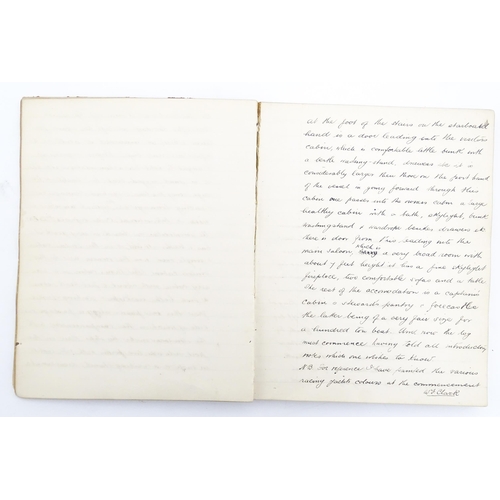 at the foot of the stairs on the starboard
hand is a door leading into the visitors
cabin, which a comfortable little bunk with
a little washing-stand, drawers it is
considerably larger than those on the port hand
of the vessel in going forward through this
cabin one passes into the womans cabin a large
healthy cabin with a bath, skylight, bunk
washingstand & wardrobe besides drawers etc
there is door from this leading into the
main saloon, which is a very broad room with
about 7 feet height it has a fine skylight
fireplace, two comfortable sofas and a table
The rest of the accomodation is a captain's
cabin a steward's pantry & forecastle
the latter being of a very fair size for
a hundred ton boat. And now the log
must commence having told all introductory
notes which one wishes to know.
N.B. For reference I have painted the various
racing yachts colours at the commencement
Clark